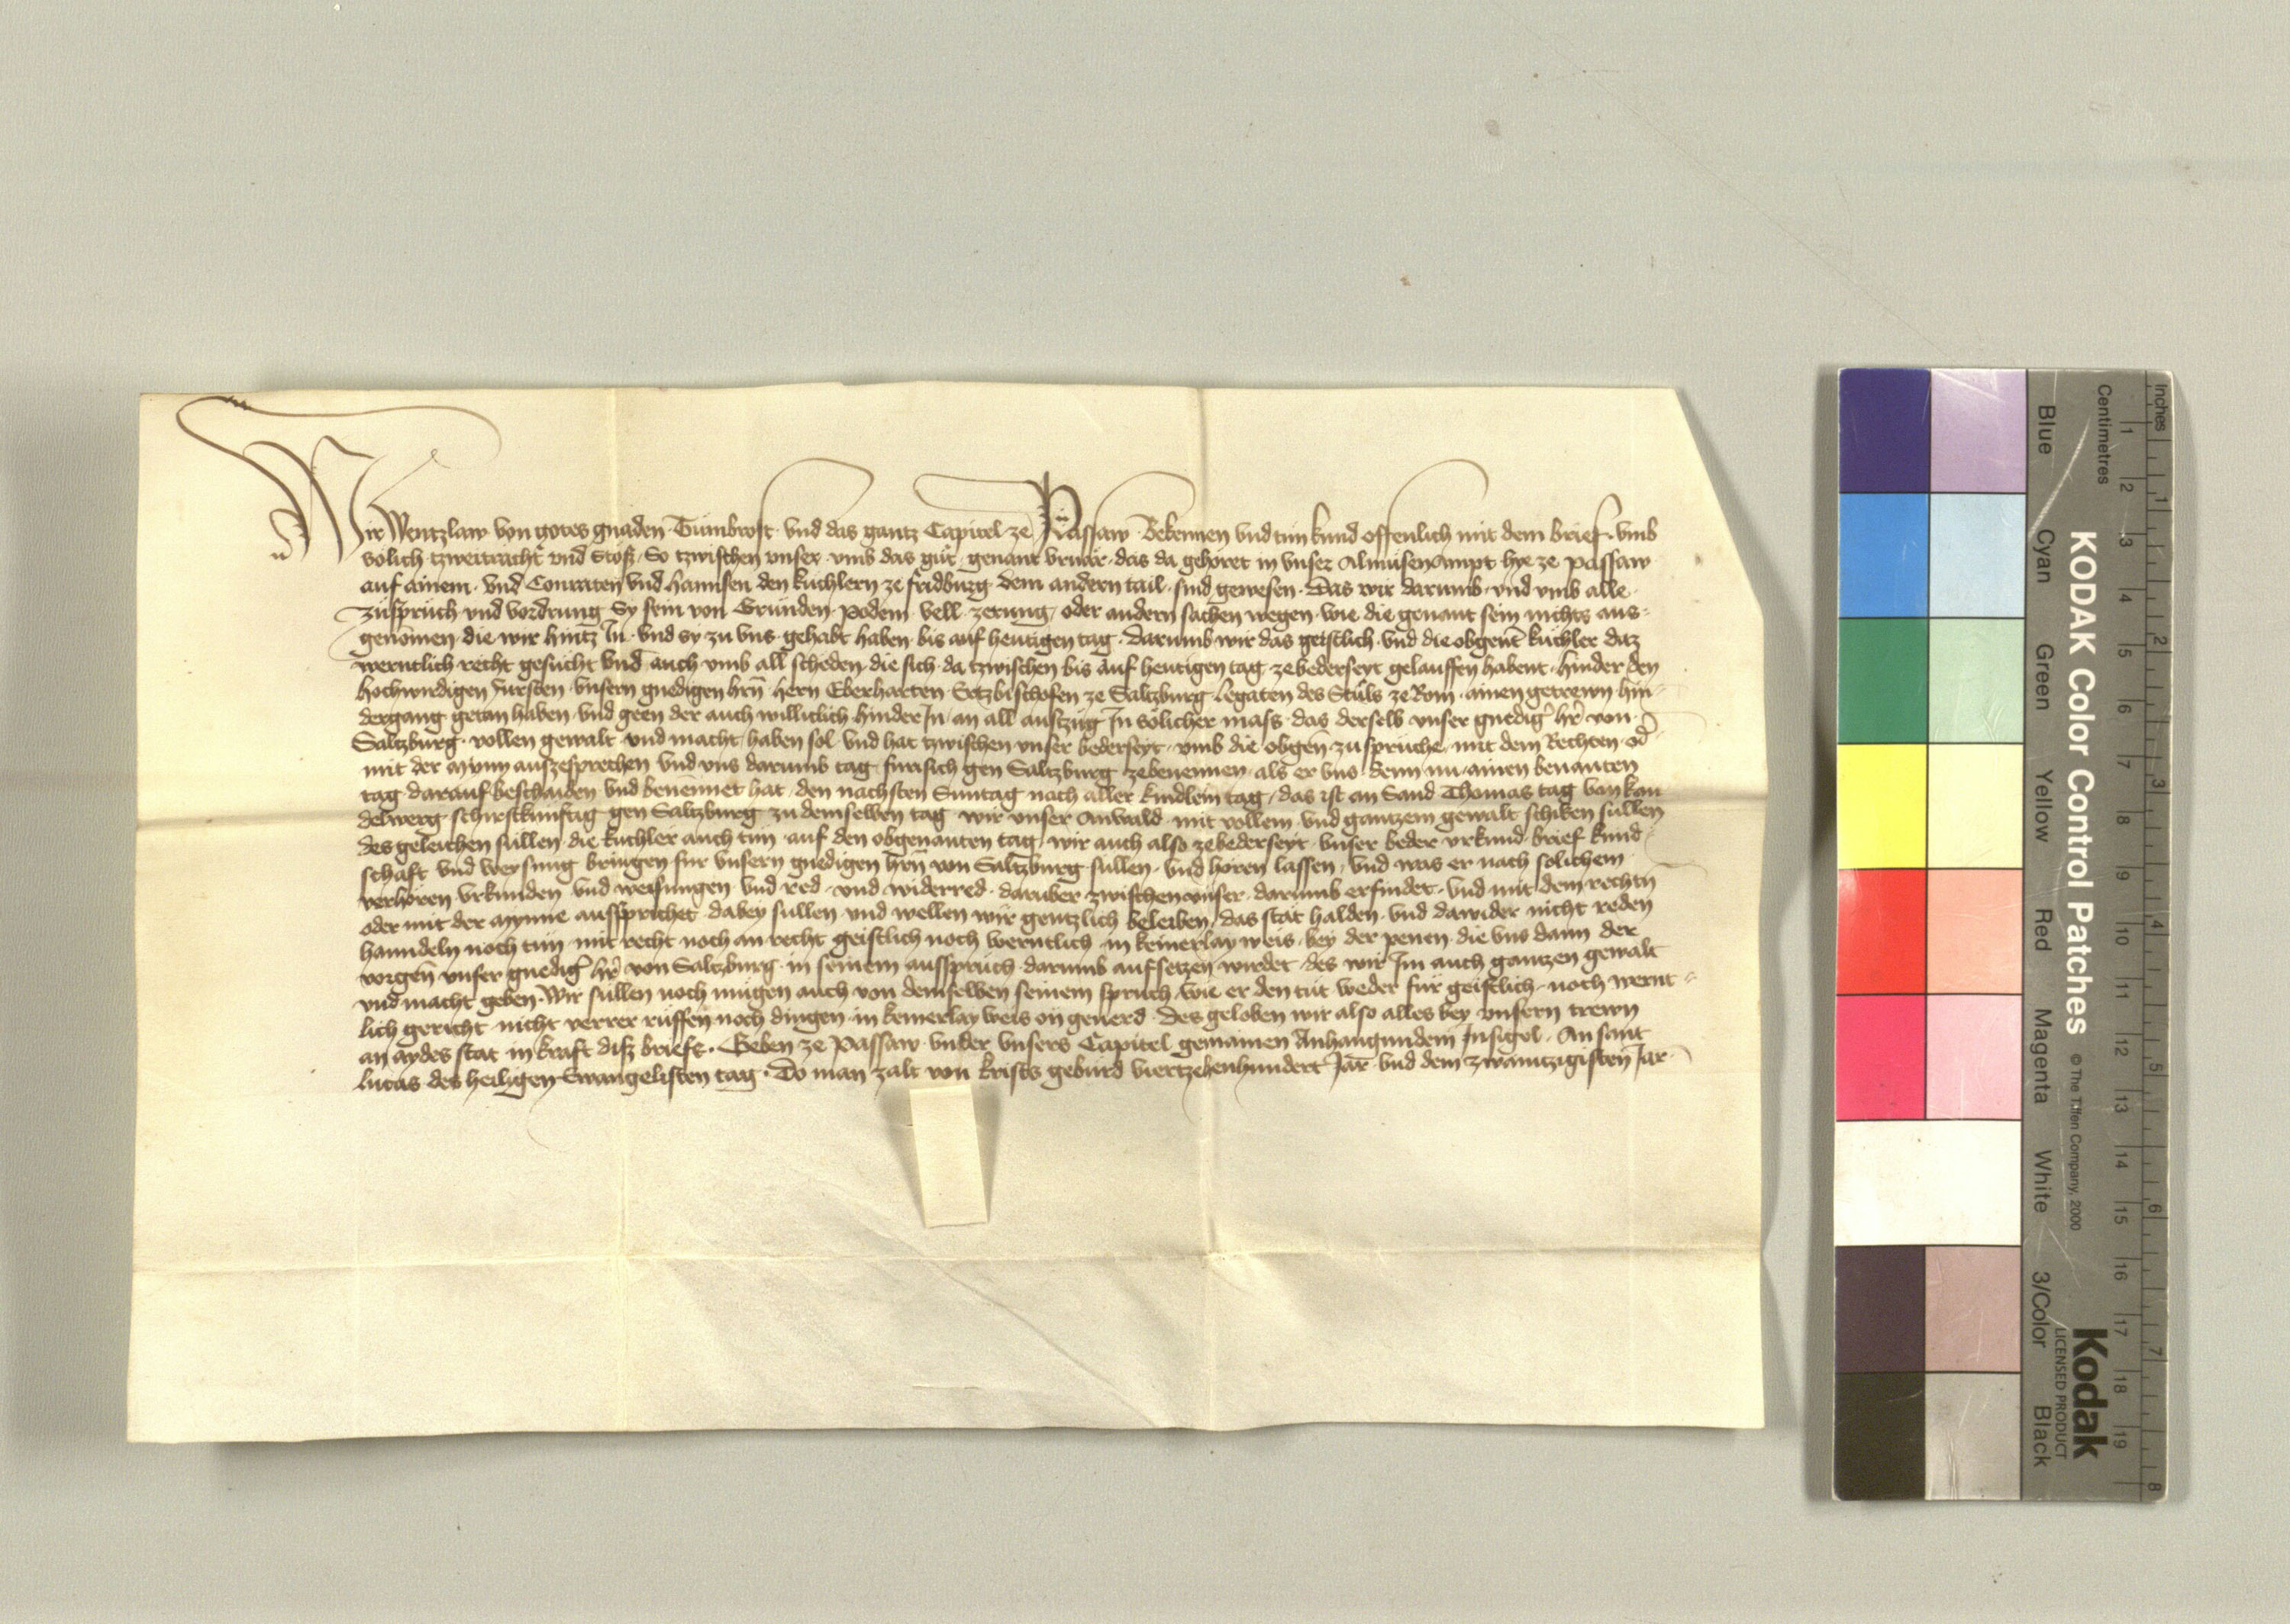 Wir Wentzlaw von gotes gnaden Tumbrost vnd das gantz Capitel ze Passaw Bekennen vnd tun kund offenlich mit dem brief vmb
solich tzweitracht vnd Stoß So tzwischen vnser vmb das gut genant das da gehoret in vnser Almusen Ampt hye ze Passaw
auf ainem vnd Conraten vnd Hannsen den kuchlern ze fridburg dem andern tail sind gewesen Das wir darumb vnd vmb alle
zuspruch vnd vordrung Sy sein von Grunden podem vell zerung oder andern sachen wegen wie die genant sein nichts aus-
genomen die wir hintz In vnd sy zu vns gehabt haben bis auf heutigen tag Darumb wir das geistlich vnd die obgent kuchler daz
werntlich recht gesucht vnd auch vmb all scheden die sich da tzwischen bis auf heutigen tag ze bederseyt gelauffen habent hinder den
hochwirdigen fursten vnsern gnedigen hrn hern Eberharten Ertzbischofen ze Saltzburg Legaten des Stuls ze Rom ainen getrewn hin-
dergang getan haben vnd geen der auch williclich hinder In an all auszug In solicher mass das derselb vnser gnedig hr von
Saltzburg vollen gewalt vnd macht haben sol vnd hat tzwischen vnser bederseyt vmb die obgen zuspruche mit dem Rechten od
mit der mynn auszesprechen vnd vns darumb tag fur sich gen Saltzburg zebenennen als er vns denn nu ainen benanten
tag darauf beschaiden vnd benennet hat den nachsten Suntag nach aller kindlein tag das ist an Sand Thomas tag von kan
delwerg schirstkunftig gen Saltzburg zu demselben tag wir vnser Anwald mit vollem vnd gantzem gewalt schiken sullen
des geleichen sullen die kuchler auch tun auf den obgenanten tag wir auch also ze bederseyt vnser beder vrkund brief kund-
schaft vnd weysung bringen fur vnsern gnedigen hrn von Saltzburg sullen vnd horen lassen vnd was er nach solichem
verhoren vrkunden vnd weisungen vnd red vnd widerred daruber zwischen vnser darumb erfindet vnd mit dem rechtn
oder mit der mynne ausspruchet dabey sullen vnd wellen wir gentzlich beleiben das stat halden vnd dawider nicht reden
hanndeln noch tun mit recht noch an recht geistlich noch werntlich in keinerlay weis bey der penen die vns dann der
vorgen vnser gnedig hr von Saltzburg in seinem ausspruch darumb aufsetzen wirdet des wir Im auch gantzen gewalt
vnd macht geben Wir sullen noch mugen auch von demselben seinem spruch wie er den tut weder fur geistlich noch wernt-
lich gericht nicht verrer ruffen noch dingen in keinerlay weis on geuerd Des geloben wir also alles bey vnsern trewn
an aydes stat in kraft diß briefs. Geben ze Passaw vnder vnsers Capitel gemainen Anhangundem Insigel An sant
lucas des heiligen Ewangelisten tag Do man zalt von kristi geburd viertzehenhundert Jar vnd dem zwaintzigisten Jar
KODAK Color Control Patches © The Tiffen Company, 2000
Kodak
LICENSED PRODUCT
Blue Cyan Green Yellow Red Magenta White 3/Color Black
Inches 1 2 3 4 5 6 7 8
Centimetres 1 2 3 4 5 6 7 8 9 10 11 12 13 14 15 16 17 18 19